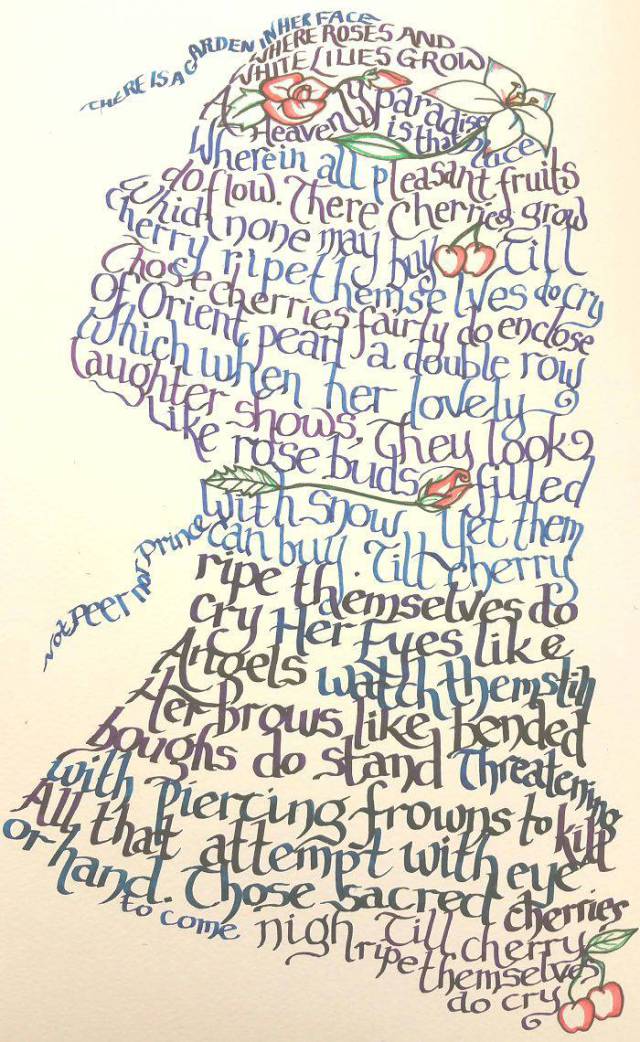 THERE IS A GARDEN IN HER FACE
WHERE ROSES AND
WHITE LILIES GROW
A Paradise
Heavenly is that place
Wherein all pleasant fruits
do flow. There Cherries grow
Which none may buy Till
Cherry ripe themselves do cry
Those cherries fairly do enclose
Of Orient pearl a double row
Which when her lovely
Laughter shows, They look
Like rose buds filled
With snow Yet them
Not Peer nor Prince can buy. Till cherry
ripe themselves do
cry Her Eyes like
Angels watch them still
Her brows like bended
boughs do stand Threatening
with piercing frowns to kill
All that attempt with eye
or hand. Those sacred cherries
to come nigh Till cherry
ripe themselves
do cry